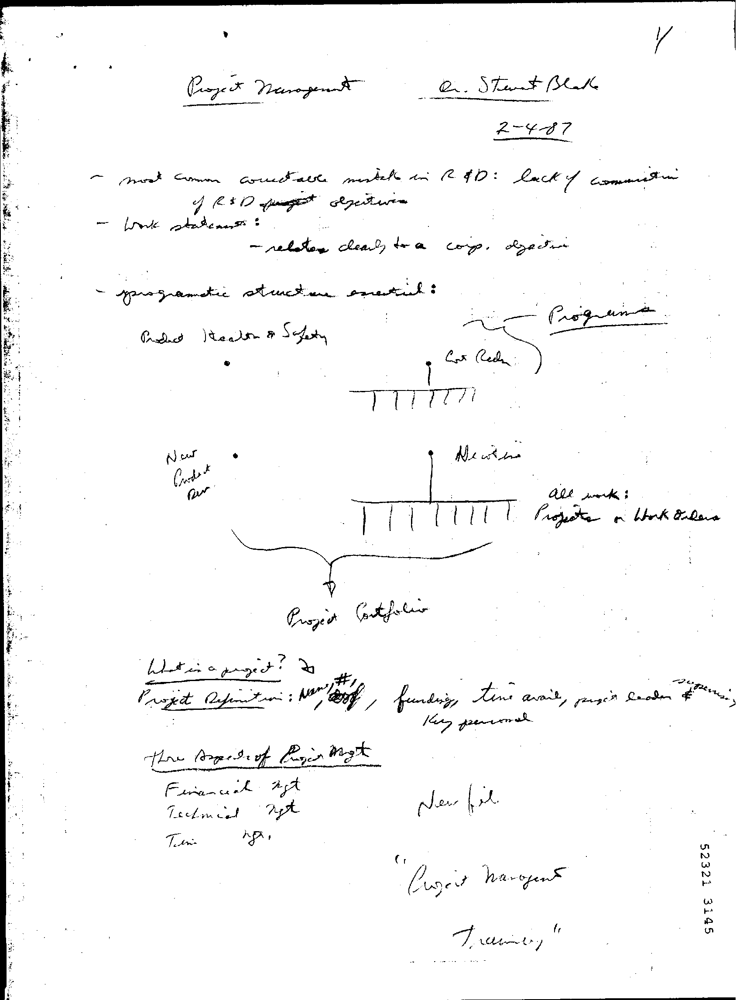 1/
Project Management Dr. Stewart Blake
2-4-87
- most common correctable mistake in R & D: lack of
of R & D project objectives
- Work statements:
- relates clearly to a corp. objective
- programatic structure essential:
Programs
Product Health & Safety
Cost Redn
New
Product
Dev
All work:
Projects or Work Orders
Project Portfolio
What is a project?
Project Definition: Name, #, funding, time avail, project leader &
Key personnel
Three Aspects of Project Mgt
Financial Mgt
Technical Mgt
Time Mgt.
New file
"Project Management
Training"
52321 3145